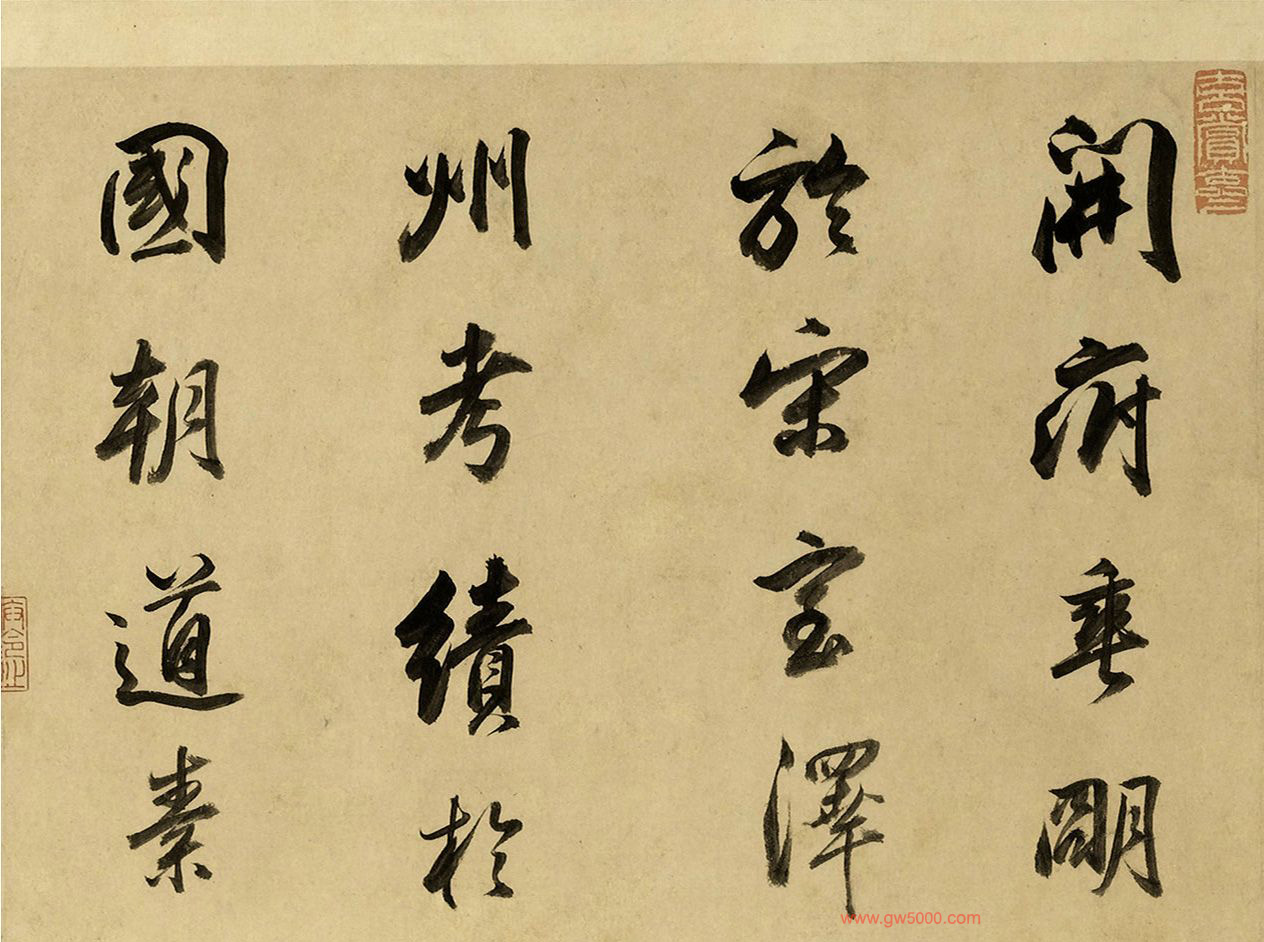 開府垂朙
於宋室澤
州考績於
國朝道素
www.gw5000.com